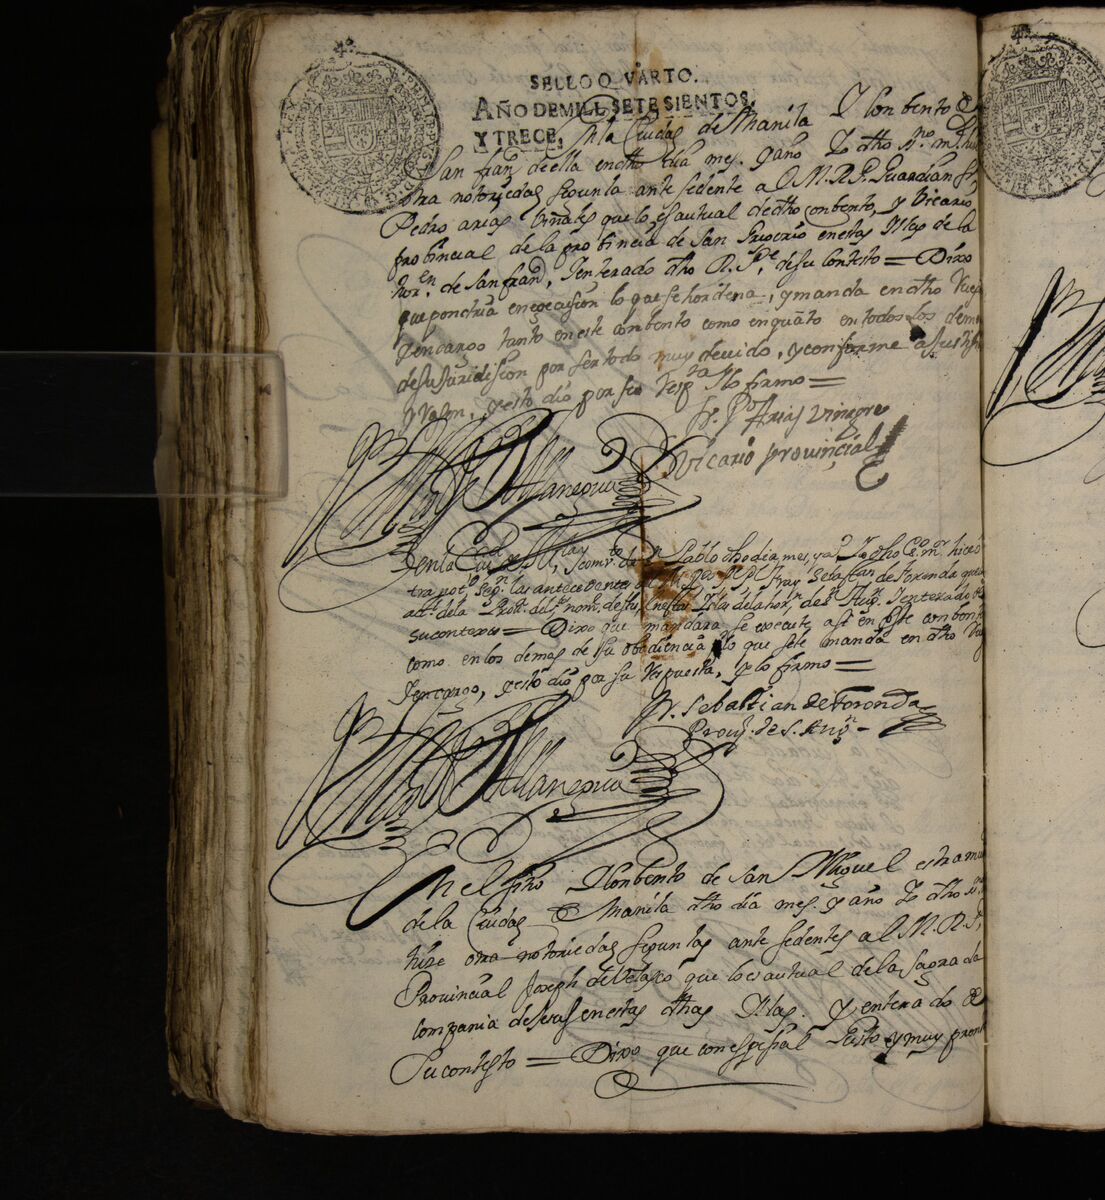 SELLO QVARTO.
AÑO DE MILL SETE SIENTOS,
Y TRECE,
En la Ciudad de Manila Y Conbento de
San fran.co de ella en dho dia mes, y año Yo dho N.o m.r hise
otra notoriedad segun la ante sedente a el M.R.P. Guardian fr.
Pedro arias que lo es autual de dho conbento, y Vicario
probincial de la probincia de San Gregorio en estas Yslas de la
hor.en de san fran.co, Y enterado dho R.P.e de su Contesto = Dixo
que pondria en egecusion lo que se hordena, y manda en dho Ruego
Y encargo tanto en este conbento como en quāto en todos los demas
de su Juridision por ser todo muy devido, y conforme a Justisia
y Rason, y esto dio por su Resp.ta Y lo firmo =
fr. P.o Arias Vinagre
Vicario provinçial
Villanegua
En la Ciu.d de M.la y Comv.to de S.n Pablo dho dia mes, y a.o Yo dho es.no m.r hice
otra not.d Seg.n las antecedentes al M. R.do P. Fray Sebastian de foronda
de la Prov.a del s.mo nom.e de Jhs en estas Yslas de la hor.n de s.n Aug.n Y enterado de
su contexto = Dixo que mandara se execute assi en este conbento
como en los demas de su obediencia lo que se te manda en dho Ruego
Y encargo, y esto dio por su Respuesta, y lo firmo =
Fr. Sebastian de Foronda
Prou.l de S. Aug.n
Villanegua
En el sitio Y Conbento de San Miguel extramuros
de la Ciudad de Manila dho dia mes, y año Yo dho N.o m.r
hize otra notoriedad segun las ante sedentes a el M.R.P.
Provincial Joseph de Velasco que lo es autual de la Sagrada
Compania de Jesus en estas dhas Yslas. Y enterado de
Su contesto = Dixo que con espesial Gusto y muy pront